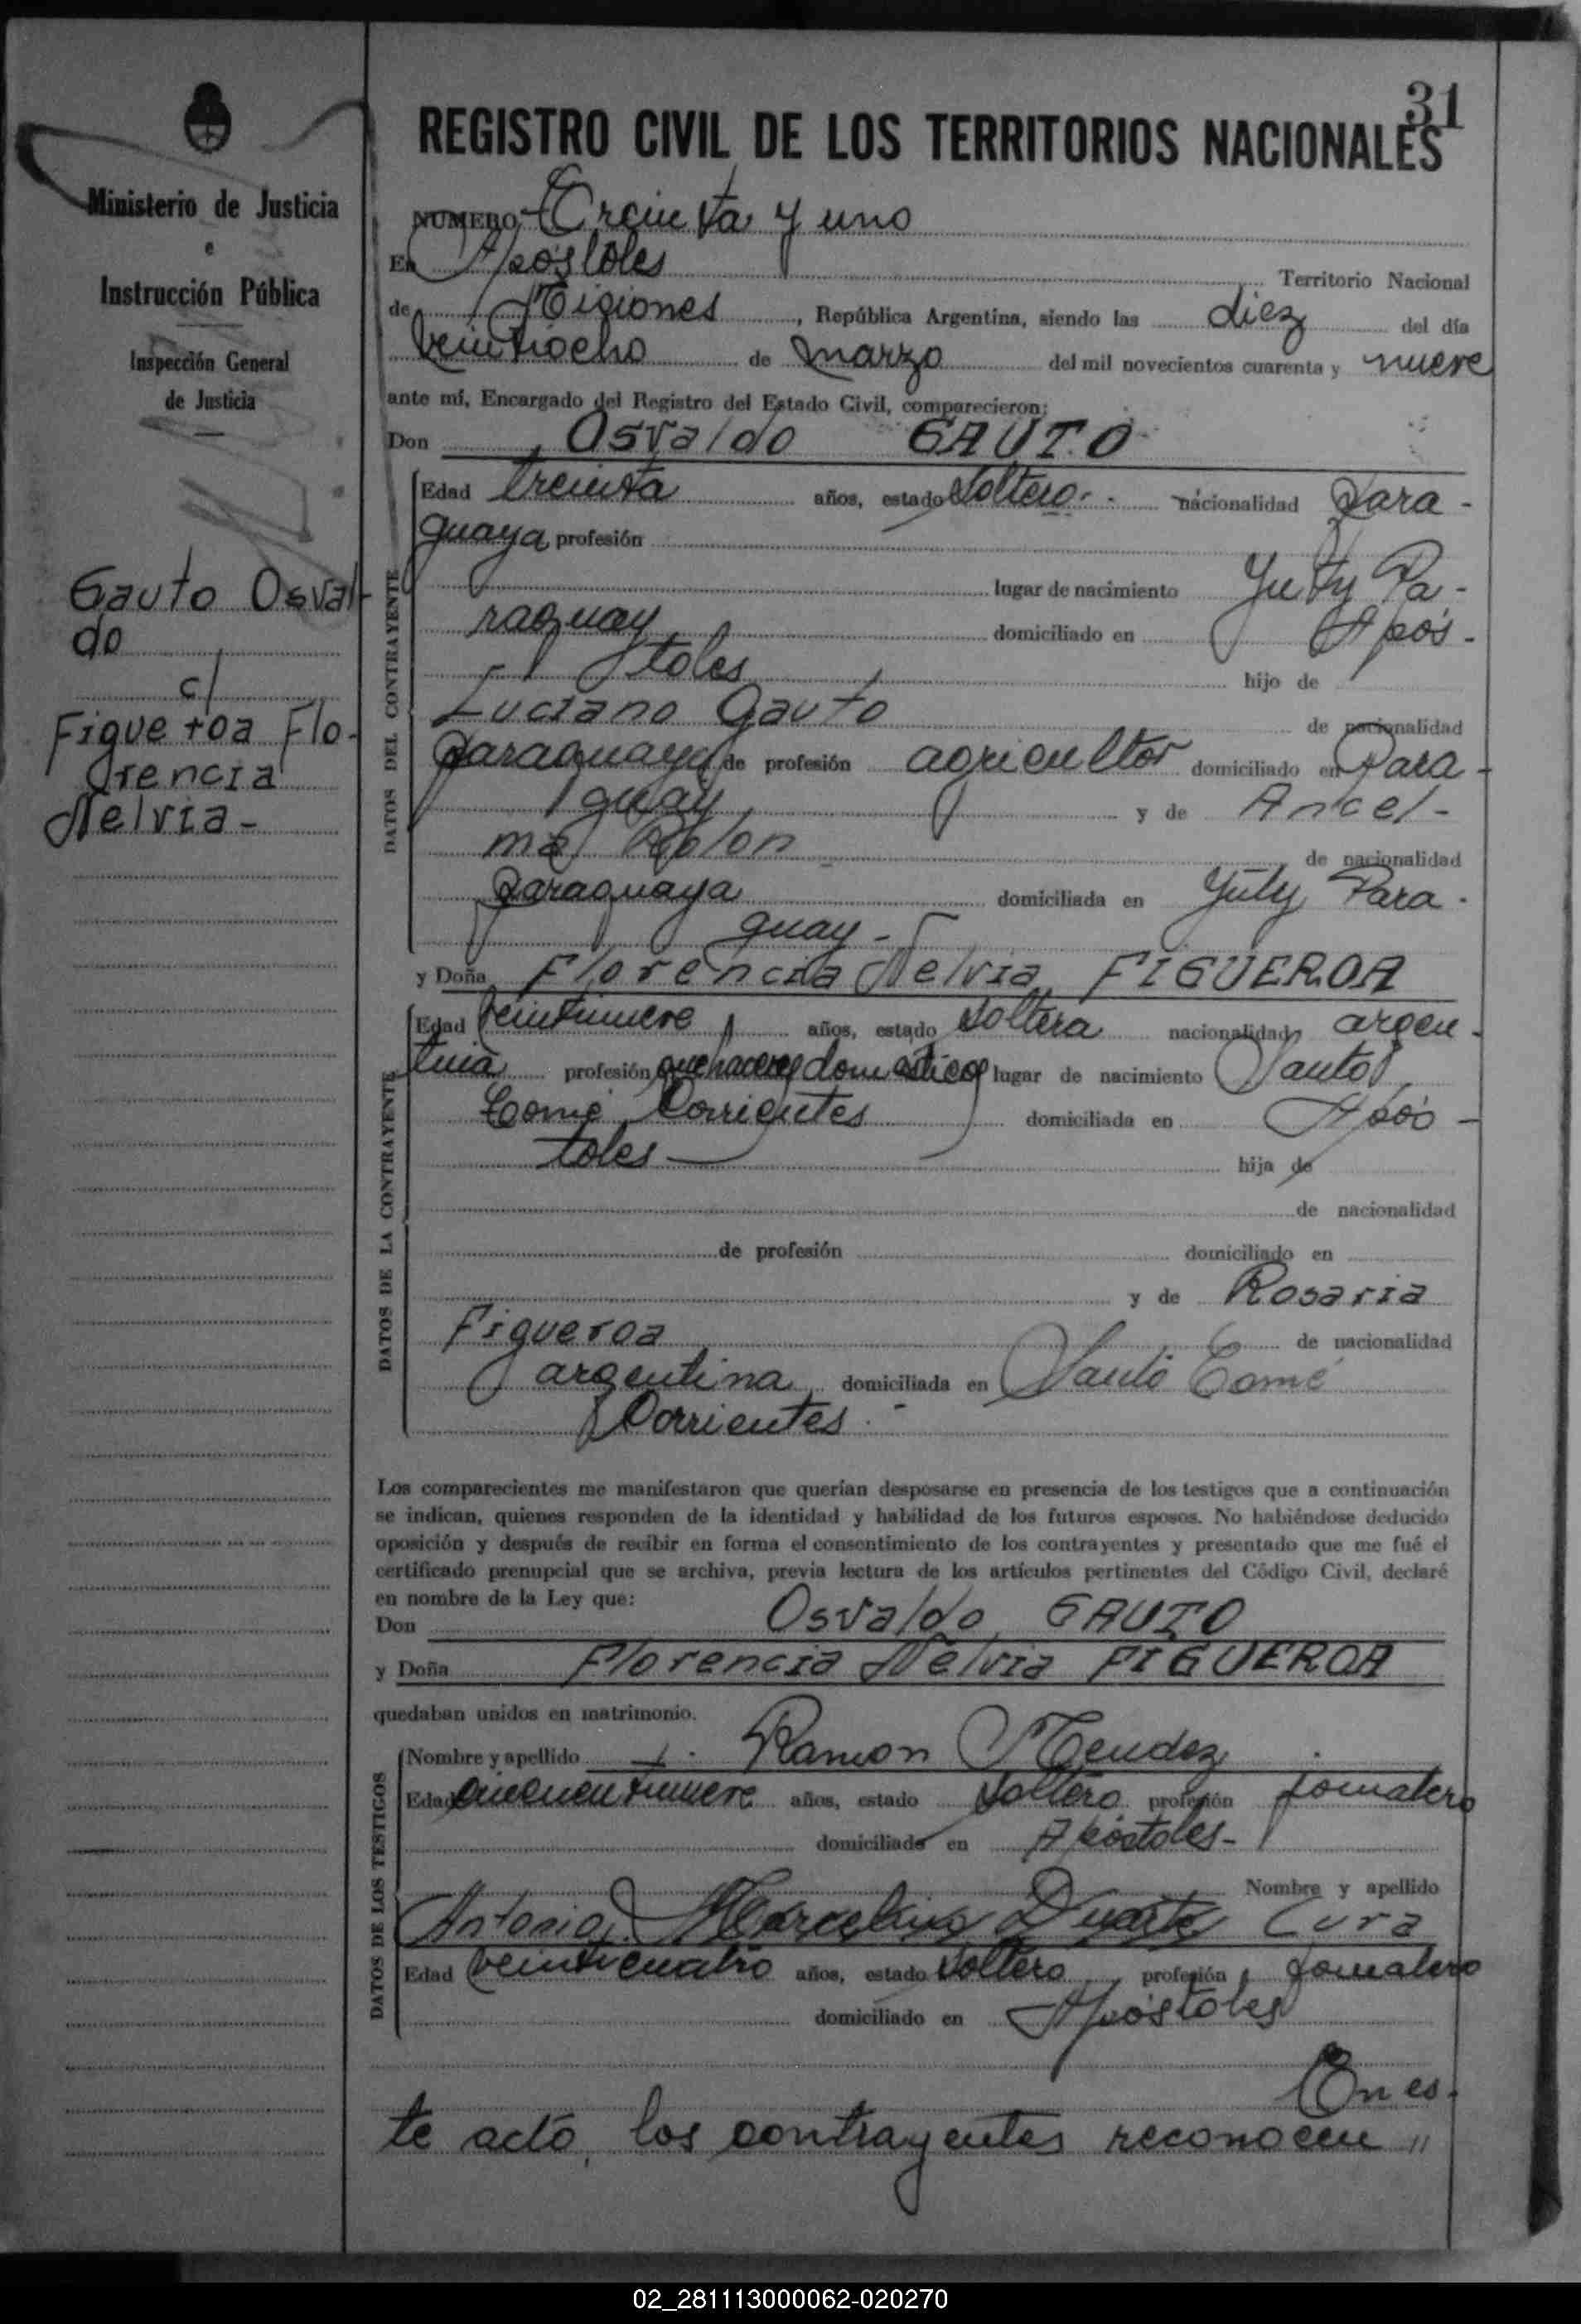 31
REGISTRO CIVIL DE LOS TERRITORIOS NACIONALES
Ministerio de Justicia
e
Instrucción Pública
Inspección General
de Justicia
Gauto Osval
do
c/
Figueroa Flo-
rencia
Nelvia -
NUMERO Treinta y uno
En Apóstoles Territorio Nacional
de Misiones, República Argentina, siendo las diez del día
veintiocho de marzo del mil novecientos cuarenta y nueve
ante mí, Encargado del Registro del Estado Civil, comparecieron:
Don Osvaldo GAUTO
DATOS DEL CONTRAYENTE
Edad treinta años, estado soltero nacionalidad para-
guaya profesión
lugar de nacimiento Yuty Pa-
raguay domiciliado en Após-
toles hijo de
Luciano Gauto de nacionalidad
paraguaya de profesión agricultor domiciliado en Para-
guay y de Ancel-
ma Rolon de nacionalidad
paraguaya domiciliada en Yuty Para-
guay -
y Doña Florencia Nelvia FIGUEROA
DATOS DE LA CONTRAYENTE
Edad veintinueve años, estado soltera nacionalidad argen-
tina profesión quehaceres domésticos lugar de nacimiento Santo
Tomé Corrientes domiciliada en Após-
toles hija de
de nacionalidad
de profesión domiciliado en
y de Rosaria
Figueroa de nacionalidad
argentina domiciliada en Santo Tomé
Corrientes.-
Los comparecientes me manifestaron que querían desposarse en presencia de los testigos que a continuación
se indican, quienes responden de la identidad y habilidad de los futuros esposos. No habiéndose deducido
oposición y después de recibir en forma el consentimiento de los contrayentes y presentado que me fué el
certificado prenupcial que se archiva, previa lectura de los artículos pertinentes del Código Civil, declaré
en nombre de la Ley que:
Don Osvaldo GAUTO
y Doña Florencia Nelvia FIGUEROA
quedaban unidos en matrimonio.
DATOS DE LOS TESTIGOS
Nombre y apellido Ramon Mendez
Edad cincuentinueve años, estado soltero profesión jornalero
domiciliado en Apóstoles-
Nombre y apellido
Antonio Marcelino Duarte Cura
Edad veinticuatro años, estado soltero profesión jornalero
domiciliado en Apóstoles
En es-
te acto, los contrayentes reconocen "
02_281113000062-020270